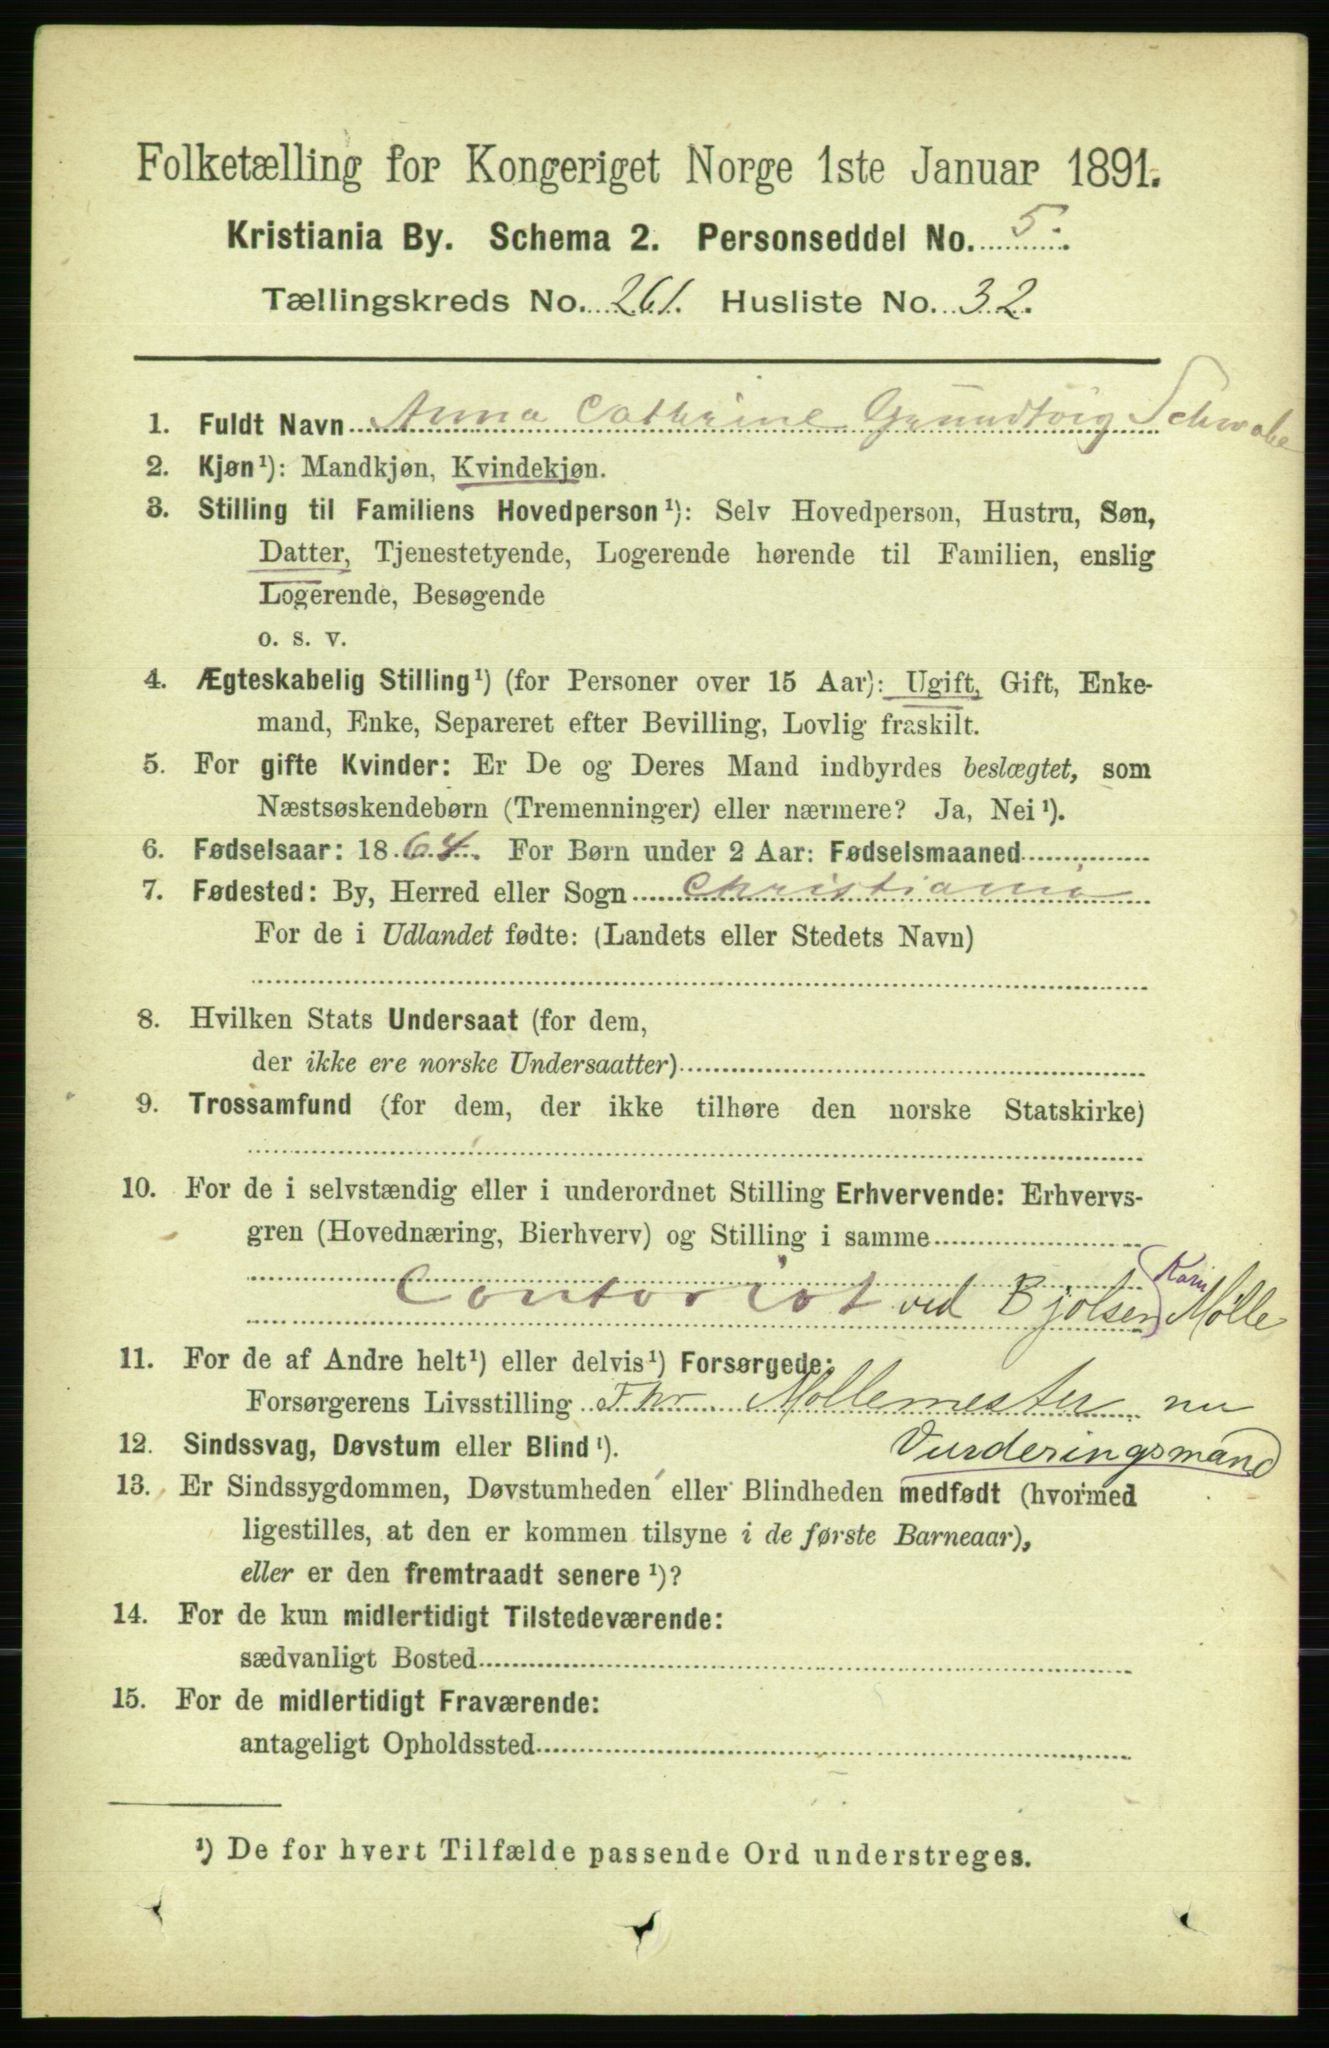 Folketælling for Kongeriget Norge 1ste Januar 1891.
Kristiania By. Schema 2. Personseddel No. 5.
Tællingskreds No. 261. Husliste No. 32.
1. Fuldt Navn Anna Cathrine Grundtvig Schwabe
2. Kjøn¹): Mandkjøn, Kvindekjøn.
3. Stilling til Familiens Hovedperson¹): Selv Hovedperson, Hustru, Søn,
Datter, Tjenestetyende, Logerende hørende til Familien, enslig
Logerende, Besøgende
o. s. v.
4. Ægteskabelig Stilling¹) (for Personer over 15 Aar): Ugift, Gift, Enke-
mand, Enke, Separeret efter Bevilling, Lovlig fraskilt.
5. For gifte Kvinder: Er De og Deres Mand indbyrdes beslægtet, som
Næstsøskendebørn (Tremenninger) eller nærmere? Ja, Nei¹).
6. Fødselsaar: 1864. For Børn under 2 Aar: Fødselsmaaned
7. Fødested: By, Herred eller Sogn Christiania
For de i Udlandet fødte: (Landets eller Stedets Navn)
8. Hvilken Stats Undersaat (for dem,
der ikke ere norske Undersaatter)
9. Trossamfund (for dem, der ikke tilhøre den norske Statskirke)
10. For de i selvstændig eller i underordnet Stilling Erhvervende: Erhvervs-
gren (Hovednæring, Bierhverv) og Stilling i samme
Contorist ved Bjølsen Mølle
11. For de af Andre helt¹) eller delvis¹) Forsørgede:
Forsørgerens Livsstilling Fhv. Møllemester nu
Vurderingsmand
12. Sindssvag, Døvstum eller Blind¹).
13. Er Sindssygdommen, Døvstumheden eller Blindheden medfødt (hvormed
ligestilles, at den er kommen tilsyne i de første Barneaar),
eller er den fremtraadt senere¹)?
14. For de kun midlertidigt Tilstedeværende:
sædvanligt Bosted
15. For de midlertidigt Fraværende:
antageligt Opholdssted
¹) De for hvert Tilfælde passende Ord understreges.